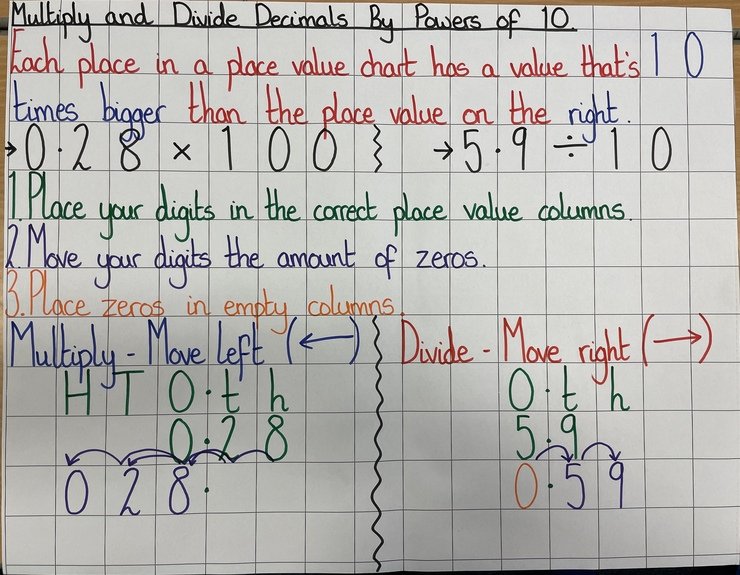 Multiply and Divide Decimals By Powers of 10.
Each place in a place value chart has a value that's 10
times bigger than the place value on the right.
→0.28 × 100 → 5.9 ÷ 10
1. Place your digits in the correct place value columns.
2. Move your digits the amount of zeros.
3. Place zeros in empty columns.
Multiply - Move left (←)
H T O . t h
0.28
0 2 8 .
Divide - Move right (→)
O . t h
5.9
0.59